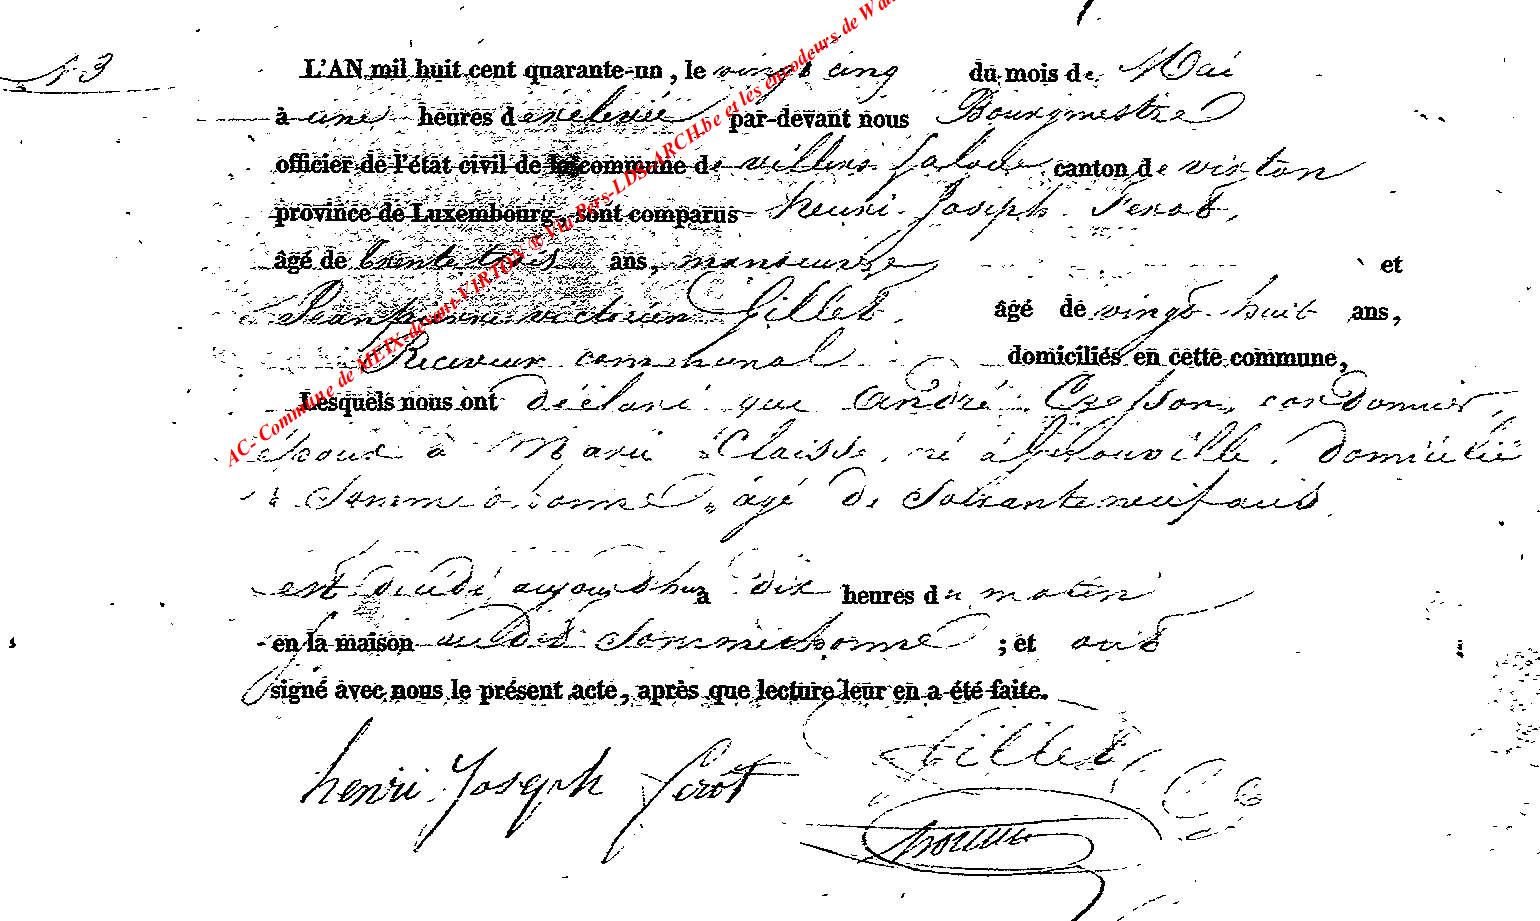 N 3
L'AN mil huit cent quarante-un, le vingt cinq du mois de Mai
à une heures de relevée par-devant nous Bourgmestre
officier de l'état civil de la commune de villers la loue canton de virton
province de Luxembourg, sont comparus henri Joseph Ferot,
âgé de trente trois ans, manoeuvre et
Jean pierre victorien Gillet, âgé de vingt huit ans,
Receveur communal domiciliés en cette commune,
Lesquels nous ont déclaré que André Cresson, cordonnier,
époux à Marie Claisse, né à gérouville, domicilié
à Sommethonne, âgé de soixante neuf ans
est décédé aujourdhui à dix heures du matin
en la maison audit Sommethonne ; et ont
signé avec nous le présent acte, après que lecture leur en a été faite.
henri Joseph ferot Gillet
AC- Commune de MEIX-devant-VIRTON ® Via Pers-LDS-ARCH.be et les encodeurs de